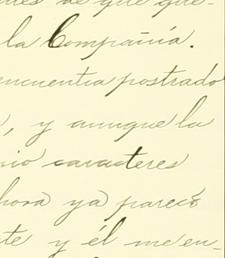 de que que-
la Compañía.
encuentra postrado
, y aunque la
caracteres
hora ya pareció
te y él me en-